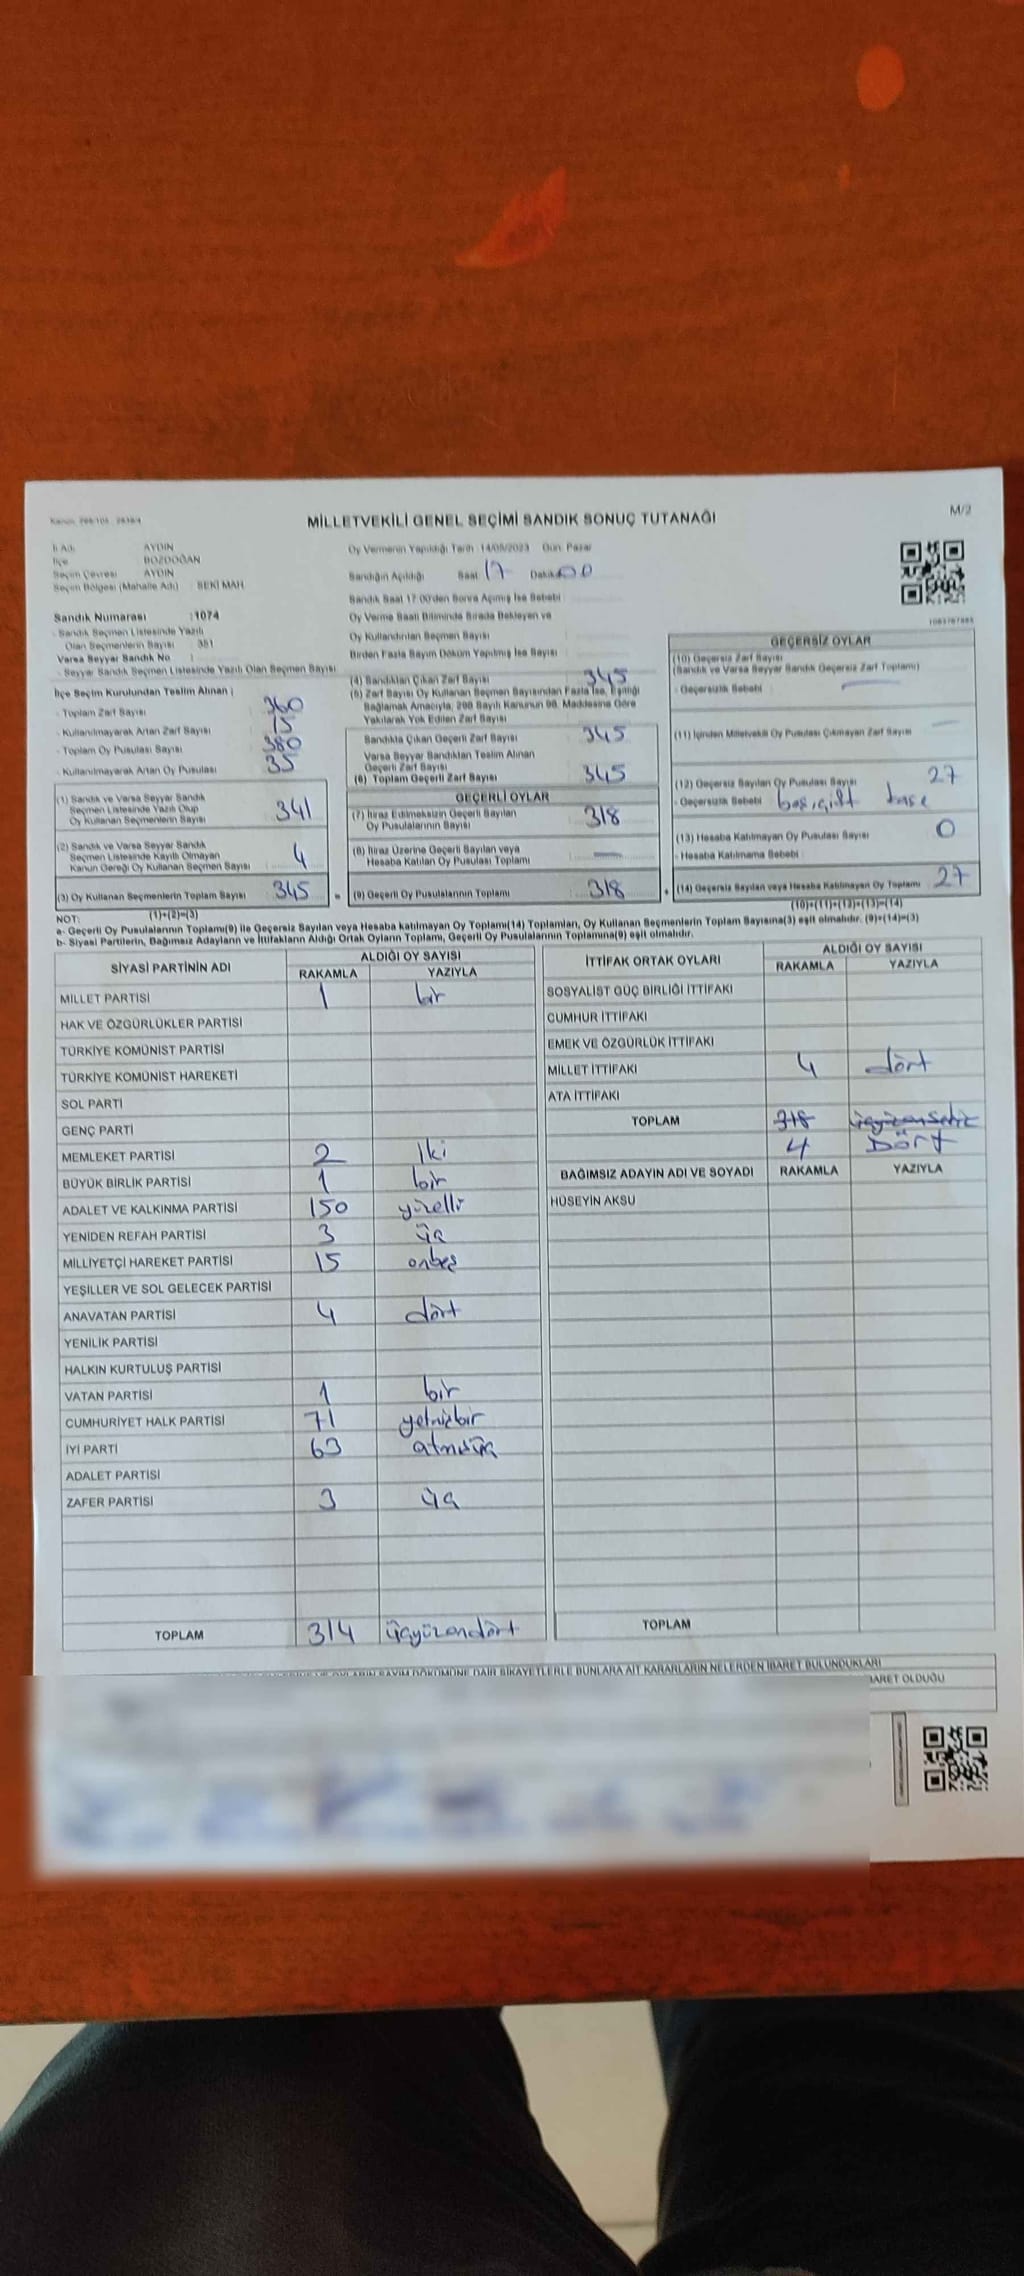 Kanun: 298/105 - 2839/4
MİLLETVEKİLİ GENEL SEÇİMİ SANDIK SONUÇ TUTANAĞI
M/2
İl Adı AYDIN
İlçe BOZDOĞAN
Seçim Çevresi AYDIN
Seçim Bölgesi (Mahalle Adı) : SEKİ MAH
Sandık Numarası :1074
- Sandık Seçmen Listesinde Yazılı
Olan Seçmenlerin Sayısı : 351
Varsa Seyyar Sandık No
- Seyyar Sandık Seçmen Listesinde Yazılı Olan Seçmen Sayısı
Oy Vermenin Yapıldığı Tarih : 14/05/2023 Gün: Pazar
Sandığın Açıldığı Saat 17 Dakika 00
Sandık Saat 17:00'den Sonra Açılmış İse Sebebi
Oy Verme Saati Bitiminde Sırada Bekleyen ve
Oy Kullandırılan Seçmen Sayısı
Birden Fazla Sayım Döküm Yapılmış İse Sayısı
İlçe Seçim Kurulundan Teslim Alınan ;
- Toplam Zarf Sayısı 360
- Kullanılmayarak Artan Zarf Sayısı 15
- Toplam Oy Pusulası Sayısı 380
- Kullanılmayarak Artan Oy Pusulası 35
(1) Sandık ve Varsa Seyyar Sandık
Seçmen Listesinde Yazılı Olup
Oy Kullanan Seçmenlerin Sayısı 341
(2) Sandık ve Varsa Seyyar Sandık
Seçmen Listesinde Kayıtlı Olmayan
Kanun Gereği Oy Kullanan Seçmen Sayısı 4
(3) Oy Kullanan Seçmenlerin Toplam Sayısı 345 =
(1)+(2)=(3)
(4) Sandıktan Çıkan Zarf Sayısı 345
(5) Zarf Sayısı Oy Kullanan Seçmen Sayısından Fazla İse, Eşitliği
Sağlamak Amacıyla, 298 Sayılı Kanunun 98. Maddesine Göre
Yakılarak Yok Edilen Zarf Sayısı
Sandıkta Çıkan Geçerli Zarf Sayısı 345
Varsa Seyyar Sandıktan Teslim Alınan
Geçerli Zarf Sayısı
(6) Toplam Geçerli Zarf Sayısı 345
GEÇERLİ OYLAR
(7) İtiraz Edilmeksizin Geçerli Sayılan
Oy Pusulalarının Sayısı 318
(8) İtiraz Üzerine Geçerli Sayılan veya
Hesaba Katılan Oy Pusulası Toplamı —
(9) Geçerli Oy Pusulalarının Toplamı 318 +
GEÇERSİZ OYLAR
(10) Geçersiz Zarf Sayısı
(Sandık ve Varsa Seyyar Sandık Geçersiz Zarf Toplamı)
- Geçersizlik Sebebi : —
(11) İçinden Milletvekili Oy Pusulası Çıkmayan Zarf Sayısı —
(12) Geçersiz Sayılan Oy Pusulası Sayısı 27
- Geçersizlik Sebebi boş, çift kaşe
(13) Hesaba Katılmayan Oy Pusulası Sayısı 0
- Hesaba Katılmama Sebebi :
(14) Geçersiz Sayılan veya Hesaba Katılmayan Oy Toplamı 27
(10)+(11)+(12)+(13)=(14)
NOT:
a- Geçerli Oy Pusulalarının Toplamı(9) ile Geçersiz Sayılan veya Hesaba katılmayan Oy Toplamı(14) Toplamları, Oy Kullanan Seçmenlerin Toplam Sayısına(3) eşit olmalıdır. (9)+(14)=(3)
b- Siyasi Partilerin, Bağımsız Adayların ve İttifakların Aldığı Ortak Oyların Toplamı, Geçerli Oy Pusulalarının Toplamına(9) eşit olmalıdır.
SİYASİ PARTİNİN ADI ALDIĞI OY SAYISI
RAKAMLA YAZIYLA
MİLLET PARTİSİ 1 bir
HAK VE ÖZGÜRLÜKLER PARTİSİ
TÜRKİYE KOMÜNİST PARTİSİ
TÜRKİYE KOMÜNİST HAREKETİ
SOL PARTİ
GENÇ PARTİ
MEMLEKET PARTİSİ 2 iki
BÜYÜK BİRLİK PARTİSİ 1 bir
ADALET VE KALKINMA PARTİSİ 150 yüzelli
YENİDEN REFAH PARTİSİ 3 üç
MİLLİYETÇİ HAREKET PARTİSİ 15 onbeş
YEŞİLLER VE SOL GELECEK PARTİSİ
ANAVATAN PARTİSİ 4 dört
YENİLİK PARTİSİ
HALKIN KURTULUŞ PARTİSİ
VATAN PARTİSİ 1 bir
CUMHURİYET HALK PARTİSİ 71 yetmişbir
İYİ PARTİ 63 atmışüç
ADALET PARTİSİ
ZAFER PARTİSİ 3 üç
TOPLAM 314 üçyüzondört
İTTİFAK ORTAK OYLARI ALDIĞI OY SAYISI
RAKAMLA YAZIYLA
SOSYALİST GÜÇ BİRLİĞİ İTTİFAKI
CUMHUR İTTİFAKI
EMEK VE ÖZGÜRLÜK İTTİFAKI
MİLLET İTTİFAKI 4 dört
ATA İTTİFAKI
TOPLAM 318 üçyüzonsekiz
4 Dört
BAĞIMSIZ ADAYIN ADI VE SOYADI RAKAMLA YAZIYLA
HÜSEYİN AKSU
TOPLAM
OYLARIN SAYIM DÖKÜMÜNE DAİR ŞİKAYETLERLE BUNLARA AİT KARARLARIN NELERDEN İBARET BULUNDUKLARI
İBARET OLDUĞU